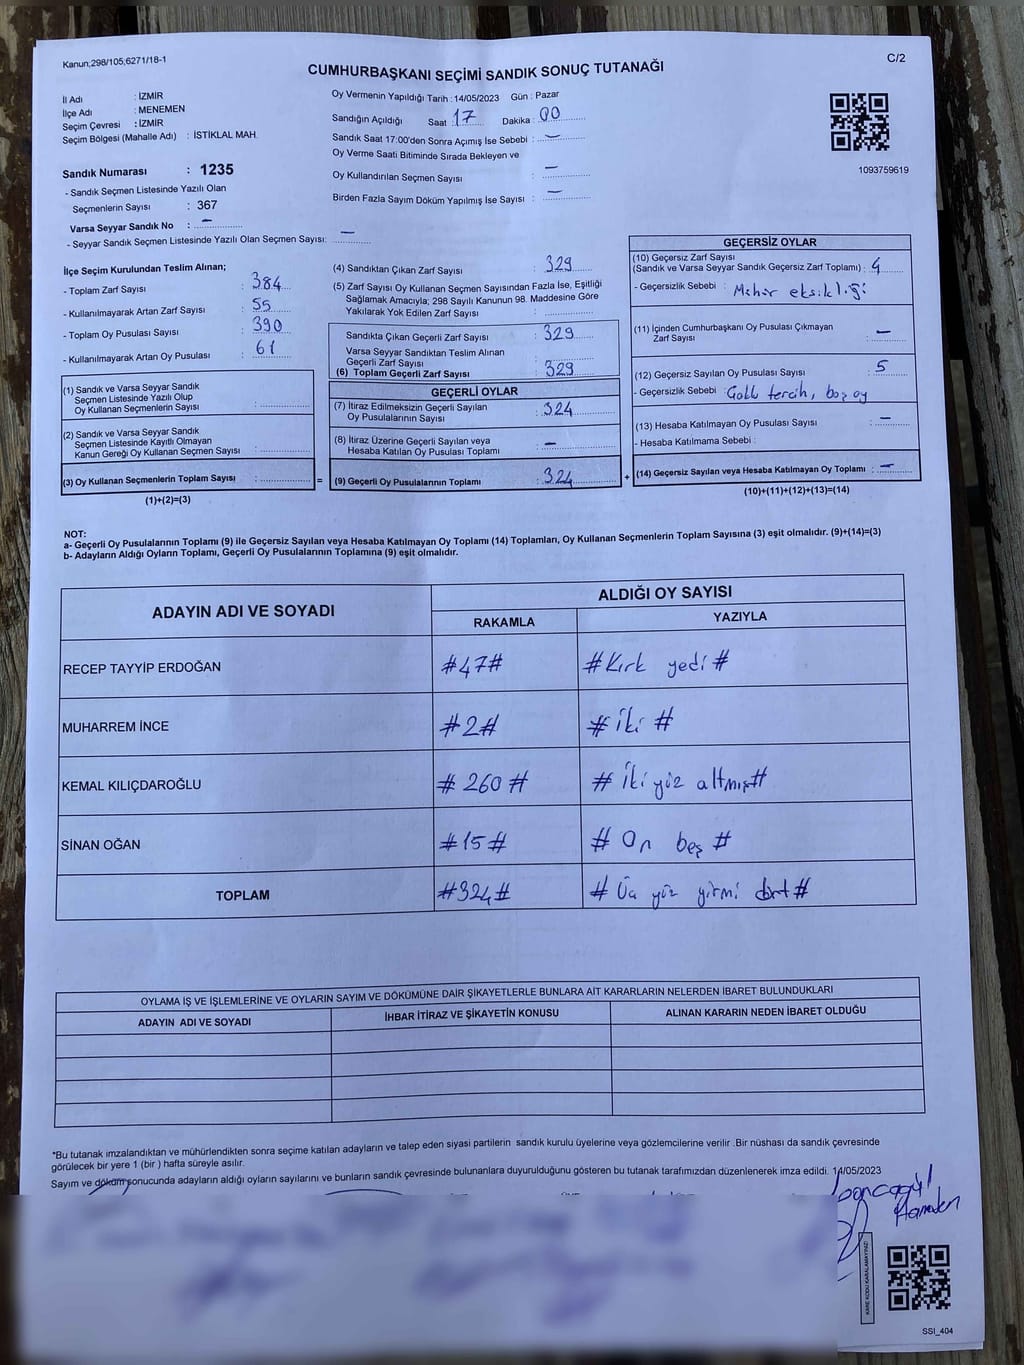 Kanun;298/105,6271/18-1
C/2
CUMHURBAŞKANI SEÇİMİ SANDIK SONUÇ TUTANAĞI
İl Adı : İZMİR
İlçe Adı : MENEMEN
Seçim Çevresi : İZMİR
Seçim Bölgesi (Mahalle Adı) : İSTİKLAL MAH.
Sandık Numarası : 1235
- Sandık Seçmen Listesinde Yazılı Olan
Seçmenlerin Sayısı : 367
Varsa Seyyar Sandık No : –
- Seyyar Sandık Seçmen Listesinde Yazılı Olan Seçmen Sayısı: –
Oy Vermenin Yapıldığı Tarih : 14/05/2023 Gün : Pazar
Sandığın Açıldığı Saat : 17 Dakika : 00
Sandık Saat 17:00'den Sonra Açımış İse Sebebi : –
Oy Verme Saati Bitiminde Sırada Bekleyen ve
Oy Kullandırılan Seçmen Sayısı : –
Birden Fazla Sayım Döküm Yapılmış İse Sayısı : –
1093759619
İlçe Seçim Kurulundan Teslim Alınan;
- Toplam Zarf Sayısı : 384
- Kullanılmayarak Artan Zarf Sayısı : 55
- Toplam Oy Pusulası Sayısı : 390
- Kullanılmayarak Artan Oy Pusulası : 61
(1) Sandık ve Varsa Seyyar Sandık
Seçmen Listesinde Yazılı Olup
Oy Kullanan Seçmenlerin Sayısı :
(2) Sandık ve Varsa Seyyar Sandık
Seçmen Listesinde Kayıtlı Olmayan
Kanun Gereği Oy Kullanan Seçmen Sayısı :
(3) Oy Kullanan Seçmenlerin Toplam Sayısı : =
(1)+(2)=(3)
(4) Sandıktan Çıkan Zarf Sayısı : 329
(5) Zarf Sayısı Oy Kullanan Seçmen Sayısından Fazla İse, Eşitliği
Sağlamak Amacıyla; 298 Sayılı Kanunun 98. Maddesine Göre
Yakılarak Yok Edilen Zarf Sayısı :
Sandıkta Çıkan Geçerli Zarf Sayısı : 329
Varsa Seyyar Sandıktan Teslim Alınan
Geçerli Zarf Sayısı :
(6) Toplam Geçerli Zarf Sayısı : 329
GEÇERLİ OYLAR
(7) İtiraz Edilmeksizin Geçerli Sayılan
Oy Pusulalarının Sayısı : 324
(8) İtiraz Üzerine Geçerli Sayılan veya
Hesaba Katılan Oy Pusulası Toplamı : –
(9) Geçerli Oy Pusulalarının Toplamı : 324 +
GEÇERSİZ OYLAR
(10) Geçersiz Zarf Sayısı
(Sandık ve Varsa Seyyar Sandık Geçersiz Zarf Toplamı) : 4
- Geçersizlik Sebebi : Mühür eksikliği
(11) İçinden Cumhurbaşkanı Oy Pusulası Çıkmayan
Zarf Sayısı : –
(12) Geçersiz Sayılan Oy Pusulası Sayısı : 5
- Geçersizlik Sebebi : Çoklu tercih, boş oy
(13) Hesaba Katılmayan Oy Pusulası Sayısı : –
- Hesaba Katılmama Sebebi :
(14) Geçersiz Sayılan veya Hesaba Katılmayan Oy Toplamı : –
(10)+(11)+(12)+(13)=(14)
NOT:
a- Geçerli Oy Pusulalarının Toplamı (9) ile Geçersiz Sayılan veya Hesaba Katılmayan Oy Toplamı (14) Toplamları, Oy Kullanan Seçmenlerin Toplam Sayısına (3) eşit olmalıdır. (9)+(14)=(3)
b- Adayların Aldığı Oyların Toplamı, Geçerli Oy Pusulalarının Toplamına (9) eşit olmalıdır.
ADAYIN ADI VE SOYADI
ALDIĞI OY SAYISI
RAKAMLA YAZIYLA
RECEP TAYYİP ERDOĞAN #47# #Kırk yedi#
MUHARREM İNCE #2# #iki#
KEMAL KILIÇDAROĞLU #260# #İki yüz altmış#
SİNAN OĞAN #15# #On beş#
TOPLAM #324# #Üç yüz yirmi dört#
OYLAMA İŞ VE İŞLEMLERİNE VE OYLARIN SAYIM VE DÖKÜMÜNE DAİR ŞİKAYETLERLE BUNLARA AİT KARARLARIN NELERDEN İBARET BULUNDUKLARI
ADAYIN ADI VE SOYADI İHBAR İTİRAZ VE ŞİKAYETİN KONUSU ALINAN KARARIN NEDEN İBARET OLDUĞU
*Bu tutanak imzalandıktan ve mühürlendikten sonra seçime katılan adayların ve talep eden siyasi partilerin sandık kurulu üyelerine veya gözlemcilerine verilir .Bir nüshası da sandık çevresinde
görülecek bir yere 1 (bir ) hafta süreyle asılır.
Sayım ve döküm sonucunda adayların aldığı oyların sayılarını ve bunların sandık çevresinde bulunanlara duyurulduğunu gösteren bu tutanak tarafımızdan düzenlenerek imza edildi. 14/05/2023
KARE KODU KARALAMAYINIZ!
SSI_404